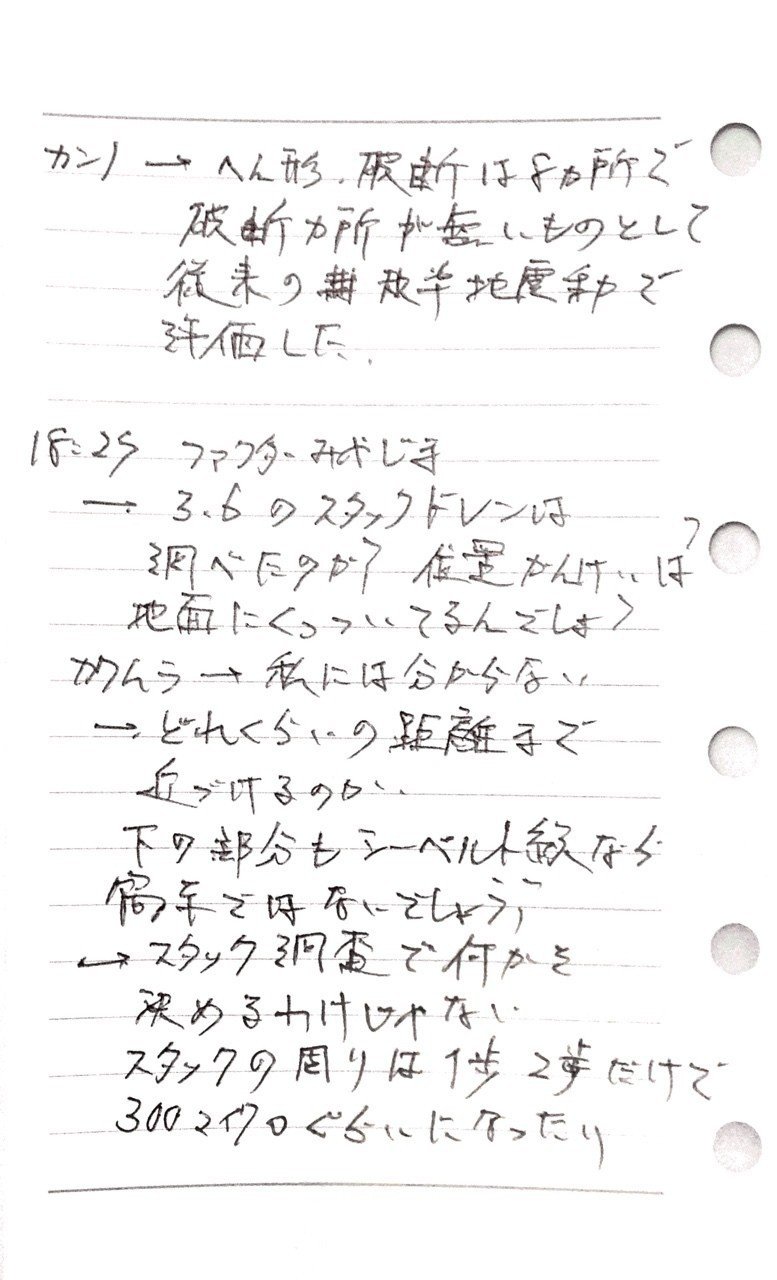 カン! → へん形、破断は8カ所で
破断カ所が無いものとして
従来の 地震動で
評価した。
18:25 ファクター みずじま
→ 3.6のスタックドレンは
調べたのか? 位置かんけいは?
地面にくっついてるんでしょ?
→ 私には分からない
→ どれくらいの距離まで
近づけるのか..
下の部分もシーベルト級なら
ではないでしょう,
→ スタック調査で何かを
決めるわけじゃない
スタックの周りは1歩2歩だけで
300マイクロぐらいになったり